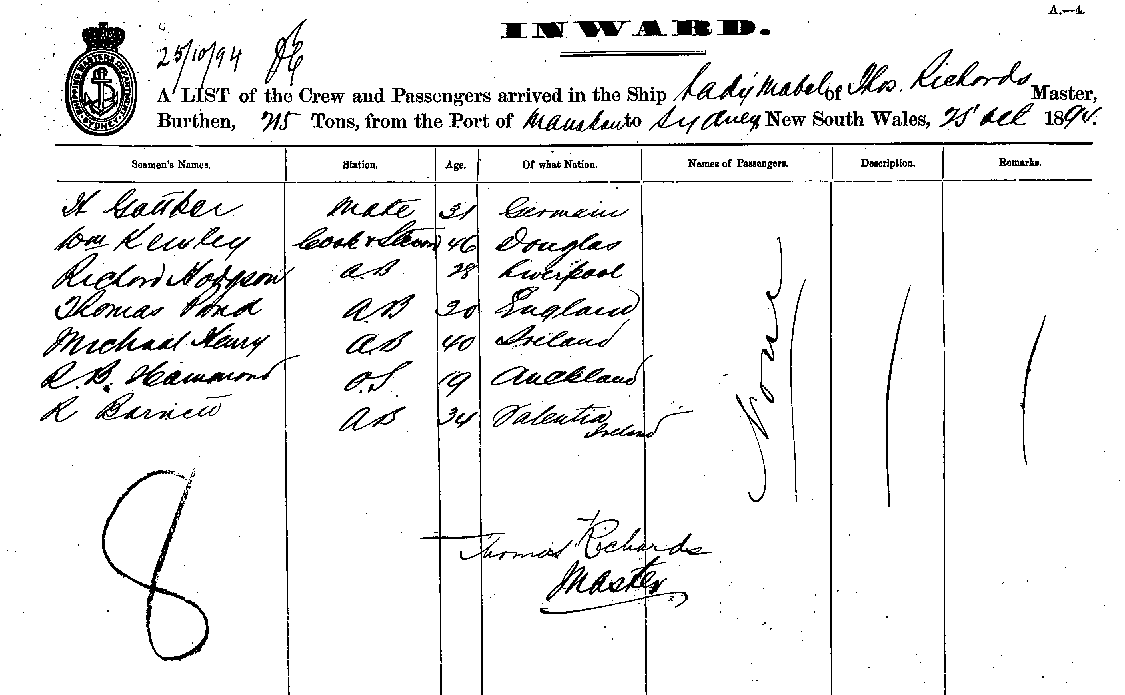 A.—4.
INWARD.
25/10/94
A LIST of the Crew and Passengers arrived in the Ship Lady Mabel of Thos. Richards Master,
Burthen, Tons, from the Port of to Sydney New South Wales, 25 Oct 1894.
Seamen's Names. Station. Age. Of what Nation. Names of Passengers. Description. Remarks.
H Mate 31 Germain
Wm Kewley Cook & 46 Douglas
Richard Hodgson AB 28 Liverpool
Thomas AB England
Michael Henry AB 40 Ireland
R. B. Hammond O.S 19 Auckland
R Barnett AB 34 Valentia
Ireland
None
8
Thomas Richards
Master